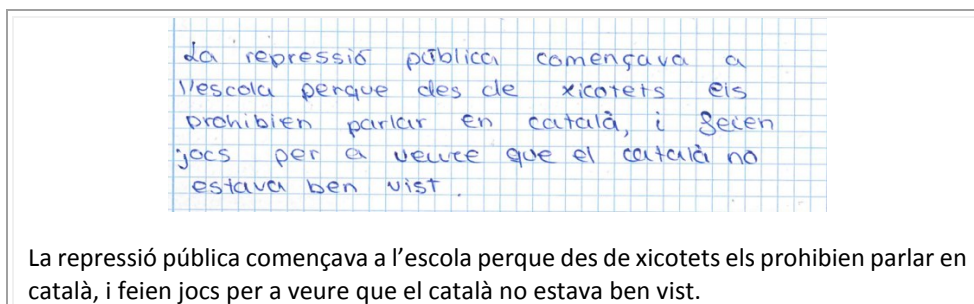 La repressió pública començava a
l'escola perque des de xicotets els
prohibien parlar en català, i feien
jocs per a veure que el català no
estava ben vist.
La repressió pública començava a l’escola perque des de xicotets els prohibien parlar en
català, i feien jocs per a veure que el català no estava ben vist.